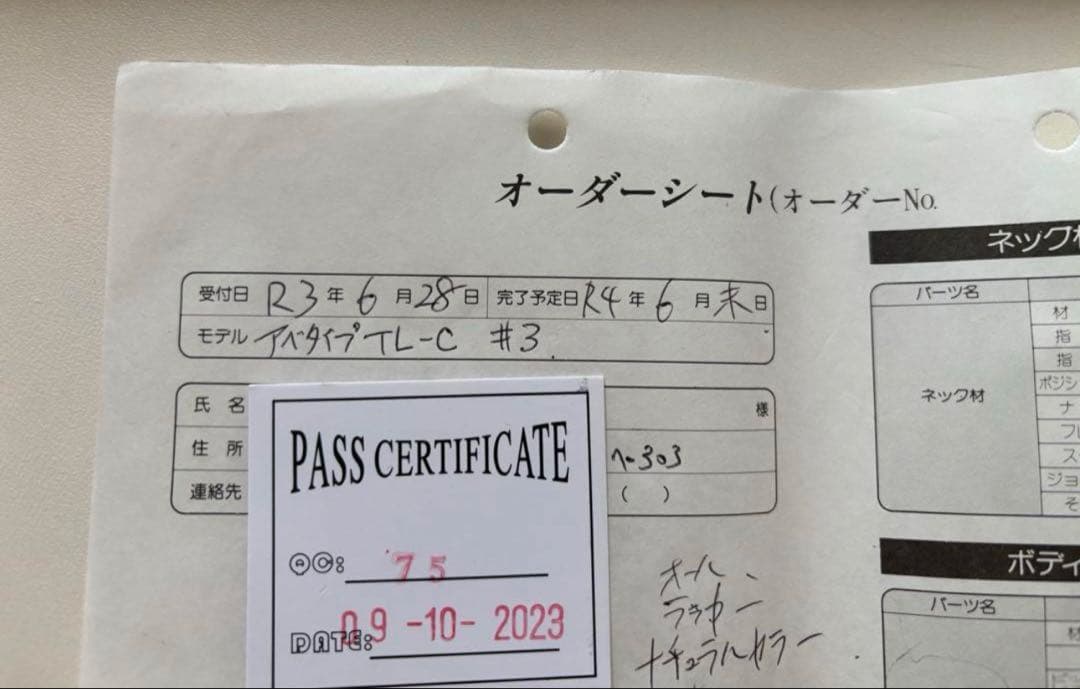 オーダーシート(オーダーNo.
受付日 R3年6月28日 完了予定日 R4年6月末日
モデル アベタイプTL-C #3.
氏名 様
住所 ヘ-303
連絡先 ( )
PASS CERTIFICATE
QC: 75
DATE: 09-10-2023
オール
ラッカー
ナチュラルカラー
ネック材
パーツ名
材
指
指
ポジシ
ナ
フレ
ス
ジョ
そ
ネック材
ボディ
パーツ名
材